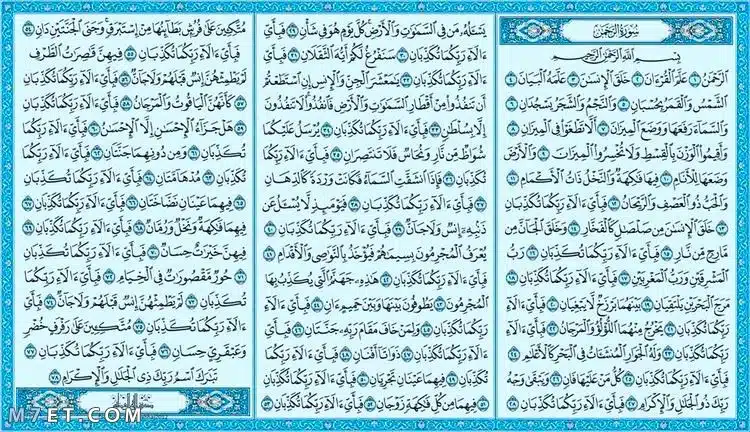 سُورَةُ الرَّحْمَٰن
بِسْمِ اللَّهِ الرَّحْمَٰنِ الرَّحِيمِ
الرَّحْمَٰنُ ١ عَلَّمَ الْقُرْءَانَ ٢ خَلَقَ الْإِنسَٰنَ ٣ عَلَّمَهُ الْبَيَانَ ٤
الشَّمْسُ وَالْقَمَرُ بِحُسْبَانٍ ٥ وَالنَّجْمُ وَالشَّجَرُ يَسْجُدَانِ ٦
وَالسَّمَاءَ رَفَعَهَا وَوَضَعَ الْمِيزَانَ ٧ أَلَّا تَطْغَوْا فِي الْمِيزَانِ ٨
وَأَقِيمُوا الْوَزْنَ بِالْقِسْطِ وَلَا تُخْسِرُوا الْمِيزَانَ ٩ وَالْأَرْضَ
وَضَعَهَا لِلْأَنَامِ ١٠ فِيهَا فَٰكِهَةٌ وَالنَّخْلُ ذَاتُ الْأَكْمَامِ ١١
وَالْحَبُّ ذُو الْعَصْفِ وَالرَّيْحَانُ ١٢ فَبِأَيِّ ءَالَاءِ رَبِّكُمَا تُكَذِّبَانِ
١٣ خَلَقَ الْإِنسَٰنَ مِن صَلْصَٰلٍ كَالْفَخَّارِ ١٤ وَخَلَقَ الْجَانَّ مِن
مَّارِجٍ مِّن نَّارٍ ١٥ فَبِأَيِّ ءَالَاءِ رَبِّكُمَا تُكَذِّبَانِ ١٦ رَبُّ
الْمَشْرِقَيْنِ وَرَبُّ الْمَغْرِبَيْنِ ١٧ فَبِأَيِّ ءَالَاءِ رَبِّكُمَا تُكَذِّبَانِ ١٨
مَرَجَ الْبَحْرَيْنِ يَلْتَقِيَانِ ١٩ بَيْنَهُمَا بَرْزَخٌ لَّا يَبْغِيَانِ ٢٠ فَبِأَيِّ ءَالَاءِ
رَبِّكُمَا تُكَذِّبَانِ ٢١ يَخْرُجُ مِنْهُمَا اللُّؤْلُؤُ وَالْمَرْجَانُ ٢٢ فَبِأَيِّ ءَالَاءِ
رَبِّكُمَا تُكَذِّبَانِ ٢٣ وَلَهُ الْجَوَارِ الْمُنشَئَاتُ فِي الْبَحْرِ كَالْأَعْلَٰمِ ٢٤
فَبِأَيِّ ءَالَاءِ رَبِّكُمَا تُكَذِّبَانِ ٢٥ كُلُّ مَنْ عَلَيْهَا فَانٍ ٢٦ وَيَبْقَىٰ وَجْهُ
رَبِّكَ ذُو الْجَلَٰلِ وَالْإِكْرَامِ ٢٧ فَبِأَيِّ ءَالَاءِ رَبِّكُمَا تُكَذِّبَانِ ٢٨
يَسْـَٔلُهُ مَن فِي السَّمَٰوَٰتِ وَالْأَرْضِ كُلَّ يَوْمٍ هُوَ فِي شَأْنٍ ٢٩ فَبِأَيِّ
ءَالَاءِ رَبِّكُمَا تُكَذِّبَانِ ٣٠ سَنَفْرُغُ لَكُمْ أَيُّهَ الثَّقَلَانِ ٣١ فَبِأَيِّ
ءَالَاءِ رَبِّكُمَا تُكَذِّبَانِ ٣٢ يَٰمَعْشَرَ الْجِنِّ وَالْإِنسِ إِنِ اسْتَطَعْتُمْ
أَن تَنفُذُوا مِنْ أَقْطَارِ السَّمَٰوَٰتِ وَالْأَرْضِ فَانفُذُوا لَا تَنفُذُونَ
إِلَّا بِسُلْطَٰنٍ ٣٣ فَبِأَيِّ ءَالَاءِ رَبِّكُمَا تُكَذِّبَانِ ٣٤ يُرْسَلُ عَلَيْكُمَا
شُوَاظٌ مِّن نَّارٍ وَنُحَاسٌ فَلَا تَنتَصِرَانِ ٣٥ فَبِأَيِّ ءَالَاءِ رَبِّكُمَا
تُكَذِّبَانِ ٣٦ فَإِذَا انشَقَّتِ السَّمَاءُ فَكَانَتْ وَرْدَةً كَالدِّهَانِ
٣٧ فَبِأَيِّ ءَالَاءِ رَبِّكُمَا تُكَذِّبَانِ ٣٨ فَيَوْمَئِذٍ لَّا يُسْـَٔلُ عَن
ذَنبِهِ إِنسٌ وَلَا جَانٌّ ٣٩ فَبِأَيِّ ءَالَاءِ رَبِّكُمَا تُكَذِّبَانِ ٤٠
يُعْرَفُ الْمُجْرِمُونَ بِسِيمَٰهُمْ فَيُؤْخَذُ بِالنَّوَٰصِي وَالْأَقْدَامِ ٤١
فَبِأَيِّ ءَالَاءِ رَبِّكُمَا تُكَذِّبَانِ ٤٢ هَٰذِهِ جَهَنَّمُ الَّتِي يُكَذِّبُ بِهَا
الْمُجْرِمُونَ ٤٣ يَطُوفُونَ بَيْنَهَا وَبَيْنَ حَمِيمٍ ءَانٍ ٤٤ فَبِأَيِّ ءَالَاءِ
رَبِّكُمَا تُكَذِّبَانِ ٤٥ وَلِمَنْ خَافَ مَقَامَ رَبِّهِ جَنَّتَانِ ٤٦ فَبِأَيِّ
ءَالَاءِ رَبِّكُمَا تُكَذِّبَانِ ٤٧ ذَوَاتَا أَفْنَانٍ ٤٨ فَبِأَيِّ ءَالَاءِ رَبِّكُمَا
تُكَذِّبَانِ ٤٩ فِيهِمَا عَيْنَانِ تَجْرِيَانِ ٥٠ فَبِأَيِّ ءَالَاءِ رَبِّكُمَا تُكَذِّبَانِ
٥١ فِيهِمَا مِن كُلِّ فَٰكِهَةٍ زَوْجَانِ ٥٢ فَبِأَيِّ ءَالَاءِ رَبِّكُمَا تُكَذِّبَانِ ٥٣
مُتَّكِـِٔينَ عَلَىٰ فُرُشٍ بَطَائِنُهَا مِنْ إِسْتَبْرَقٍ وَجَنَى الْجَنَّتَيْنِ دَانٍ ٥٤
فَبِأَيِّ ءَالَاءِ رَبِّكُمَا تُكَذِّبَانِ ٥٥ فِيهِنَّ قَٰصِرَٰتُ الطَّرْفِ
لَمْ يَطْمِثْهُنَّ إِنسٌ قَبْلَهُمْ وَلَا جَانٌّ ٥٦ فَبِأَيِّ ءَالَاءِ رَبِّكُمَا تُكَذِّبَانِ
٥٧ كَأَنَّهُنَّ الْيَاقُوتُ وَالْمَرْجَانُ ٥٨ فَبِأَيِّ ءَالَاءِ رَبِّكُمَا تُكَذِّبَانِ
٥٩ هَلْ جَزَاءُ الْإِحْسَٰنِ إِلَّا الْإِحْسَٰنُ ٦٠ فَبِأَيِّ ءَالَاءِ رَبِّكُمَا
تُكَذِّبَانِ ٦١ وَمِن دُونِهِمَا جَنَّتَانِ ٦٢ فَبِأَيِّ ءَالَاءِ رَبِّكُمَا
تُكَذِّبَانِ ٦٣ مُدْهَامَّتَانِ ٦٤ فَبِأَيِّ ءَالَاءِ رَبِّكُمَا تُكَذِّبَانِ
٦٥ فِيهِمَا عَيْنَانِ نَضَّاخَتَانِ ٦٦ فَبِأَيِّ ءَالَاءِ رَبِّكُمَا تُكَذِّبَانِ ٦٧
فِيهِمَا فَٰكِهَةٌ وَنَخْلٌ وَرُمَّانٌ ٦٨ فَبِأَيِّ ءَالَاءِ رَبِّكُمَا تُكَذِّبَانِ ٦٩
فِيهِنَّ خَيْرَٰتٌ حِسَانٌ ٧٠ فَبِأَيِّ ءَالَاءِ رَبِّكُمَا تُكَذِّبَانِ
٧١ حُورٌ مَّقْصُورَٰتٌ فِي الْخِيَامِ ٧٢ فَبِأَيِّ ءَالَاءِ رَبِّكُمَا
تُكَذِّبَانِ ٧٣ لَمْ يَطْمِثْهُنَّ إِنسٌ قَبْلَهُمْ وَلَا جَانٌّ ٧٤ فَبِأَيِّ
ءَالَاءِ رَبِّكُمَا تُكَذِّبَانِ ٧٥ مُتَّكِـِٔينَ عَلَىٰ رَفْرَفٍ خُضْرٍ
وَعَبْقَرِيٍّ حِسَانٍ ٧٦ فَبِأَيِّ ءَالَاءِ رَبِّكُمَا تُكَذِّبَانِ ٧٧
تَبَٰرَكَ اسْمُ رَبِّكَ ذِي الْجَلَٰلِ وَالْإِكْرَامِ ٧٨
M7ET.COM